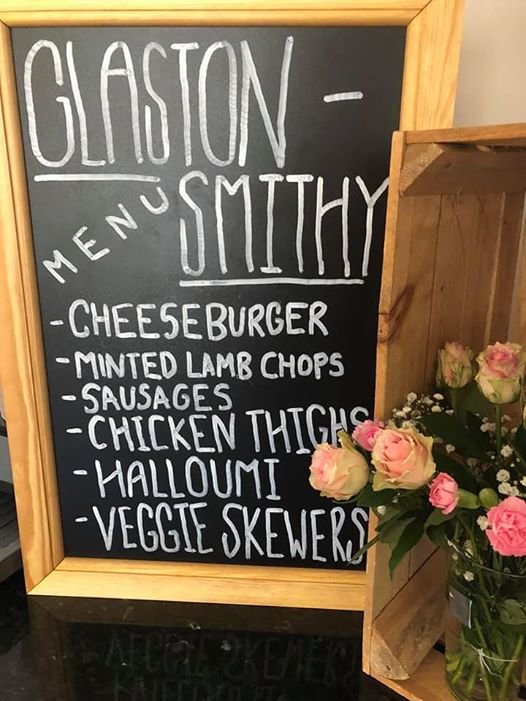 GLASTON -
SMITHY
MENU
- CHEESEBURGER
- MINTED LAMB CHOPS
- SAUSAGES
- CHICKEN THIGHS
- HALLOUMI
- VEGGIE SKEWERS